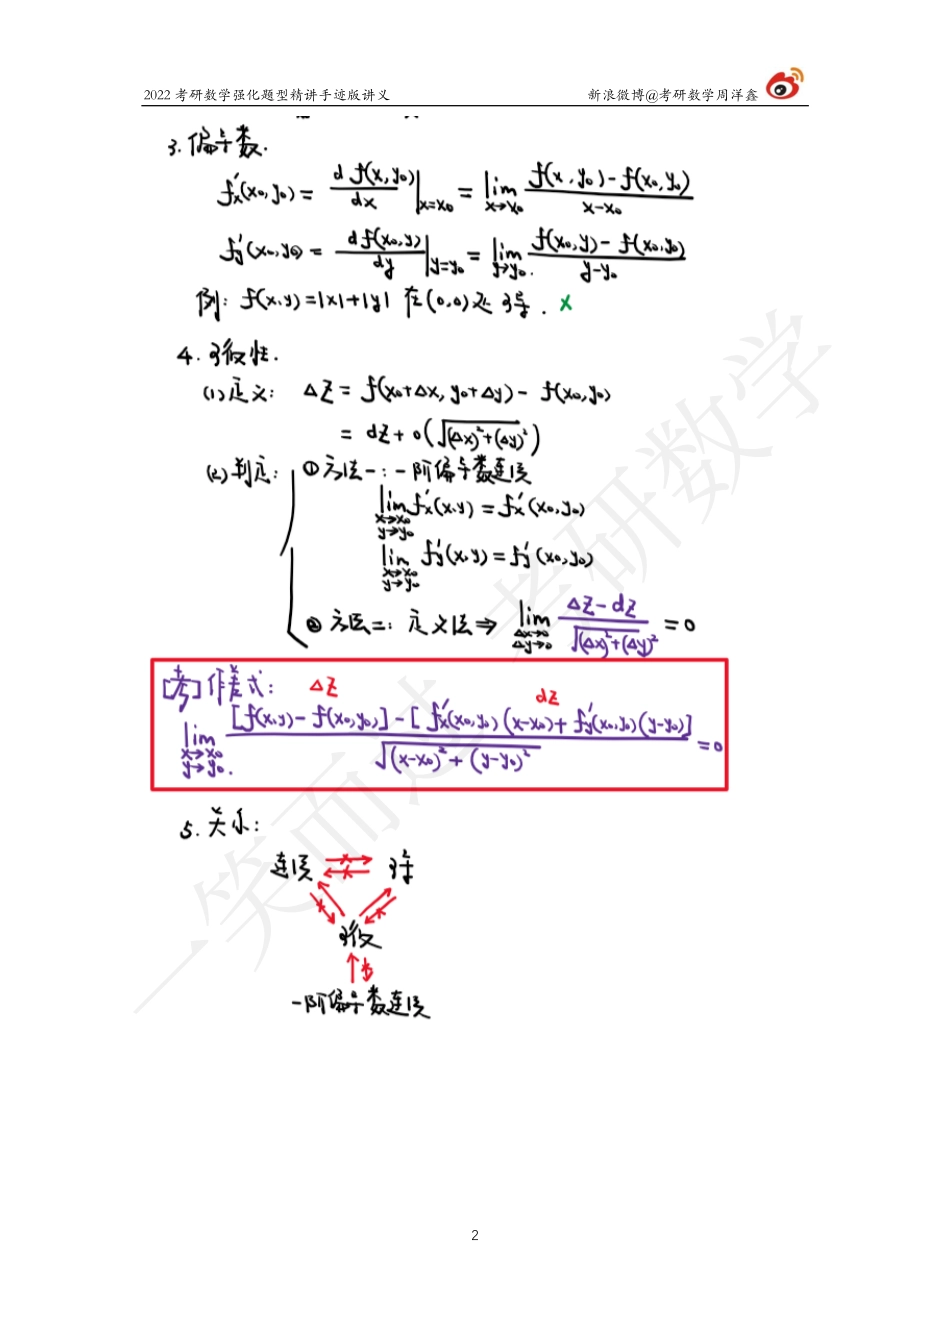 2022 考研数学强化题型精讲手迹版讲义 新浪微博@考研数学周洋鑫
3. 偏导数.
f'x(x₀,y₀) = d f(x,y₀)/dx |x=x₀ = lim x→x₀ f(x,y₀)-f(x₀,y₀)/x-x₀
f'y(x₀,y₀) = d f(x₀,y)/dy |y=y₀ = lim y→y₀. f(x₀,y)-f(x₀,y₀)/y-y₀
例: f(x,y)=|x|+|y| 在(0,0)处可导. ×
4. 可微性.
(1)定义: ΔZ = f(x₀+Δx, y₀+Δy) - f(x₀,y₀)
= dZ + o(√(Δx)²+(Δy)²)
(2)判定: ①方法一:一阶偏导数连续
lim x→x₀ y→y₀ f'x(x,y) = f'x(x₀,y₀)
lim x→x₀ y→y₀ f'y(x,y) = f'y(x₀,y₀)
②方法二: 定义法 ⇒ lim Δx→0 Δy→0 ΔZ-dZ/√(Δx)²+(Δy)² = 0
[考] 作差式: ΔZ dZ
lim x→x₀ y→y₀. [f(x,y)-f(x₀,y₀)]-[f'x(x₀,y₀)(x-x₀)+f'y(x₀,y₀)(y-y₀)]/√(x-x₀)²+(y-y₀)² = 0
5. 关系:
连续 可导
可微
一阶偏导数连续
一笑而过 考研数学
2